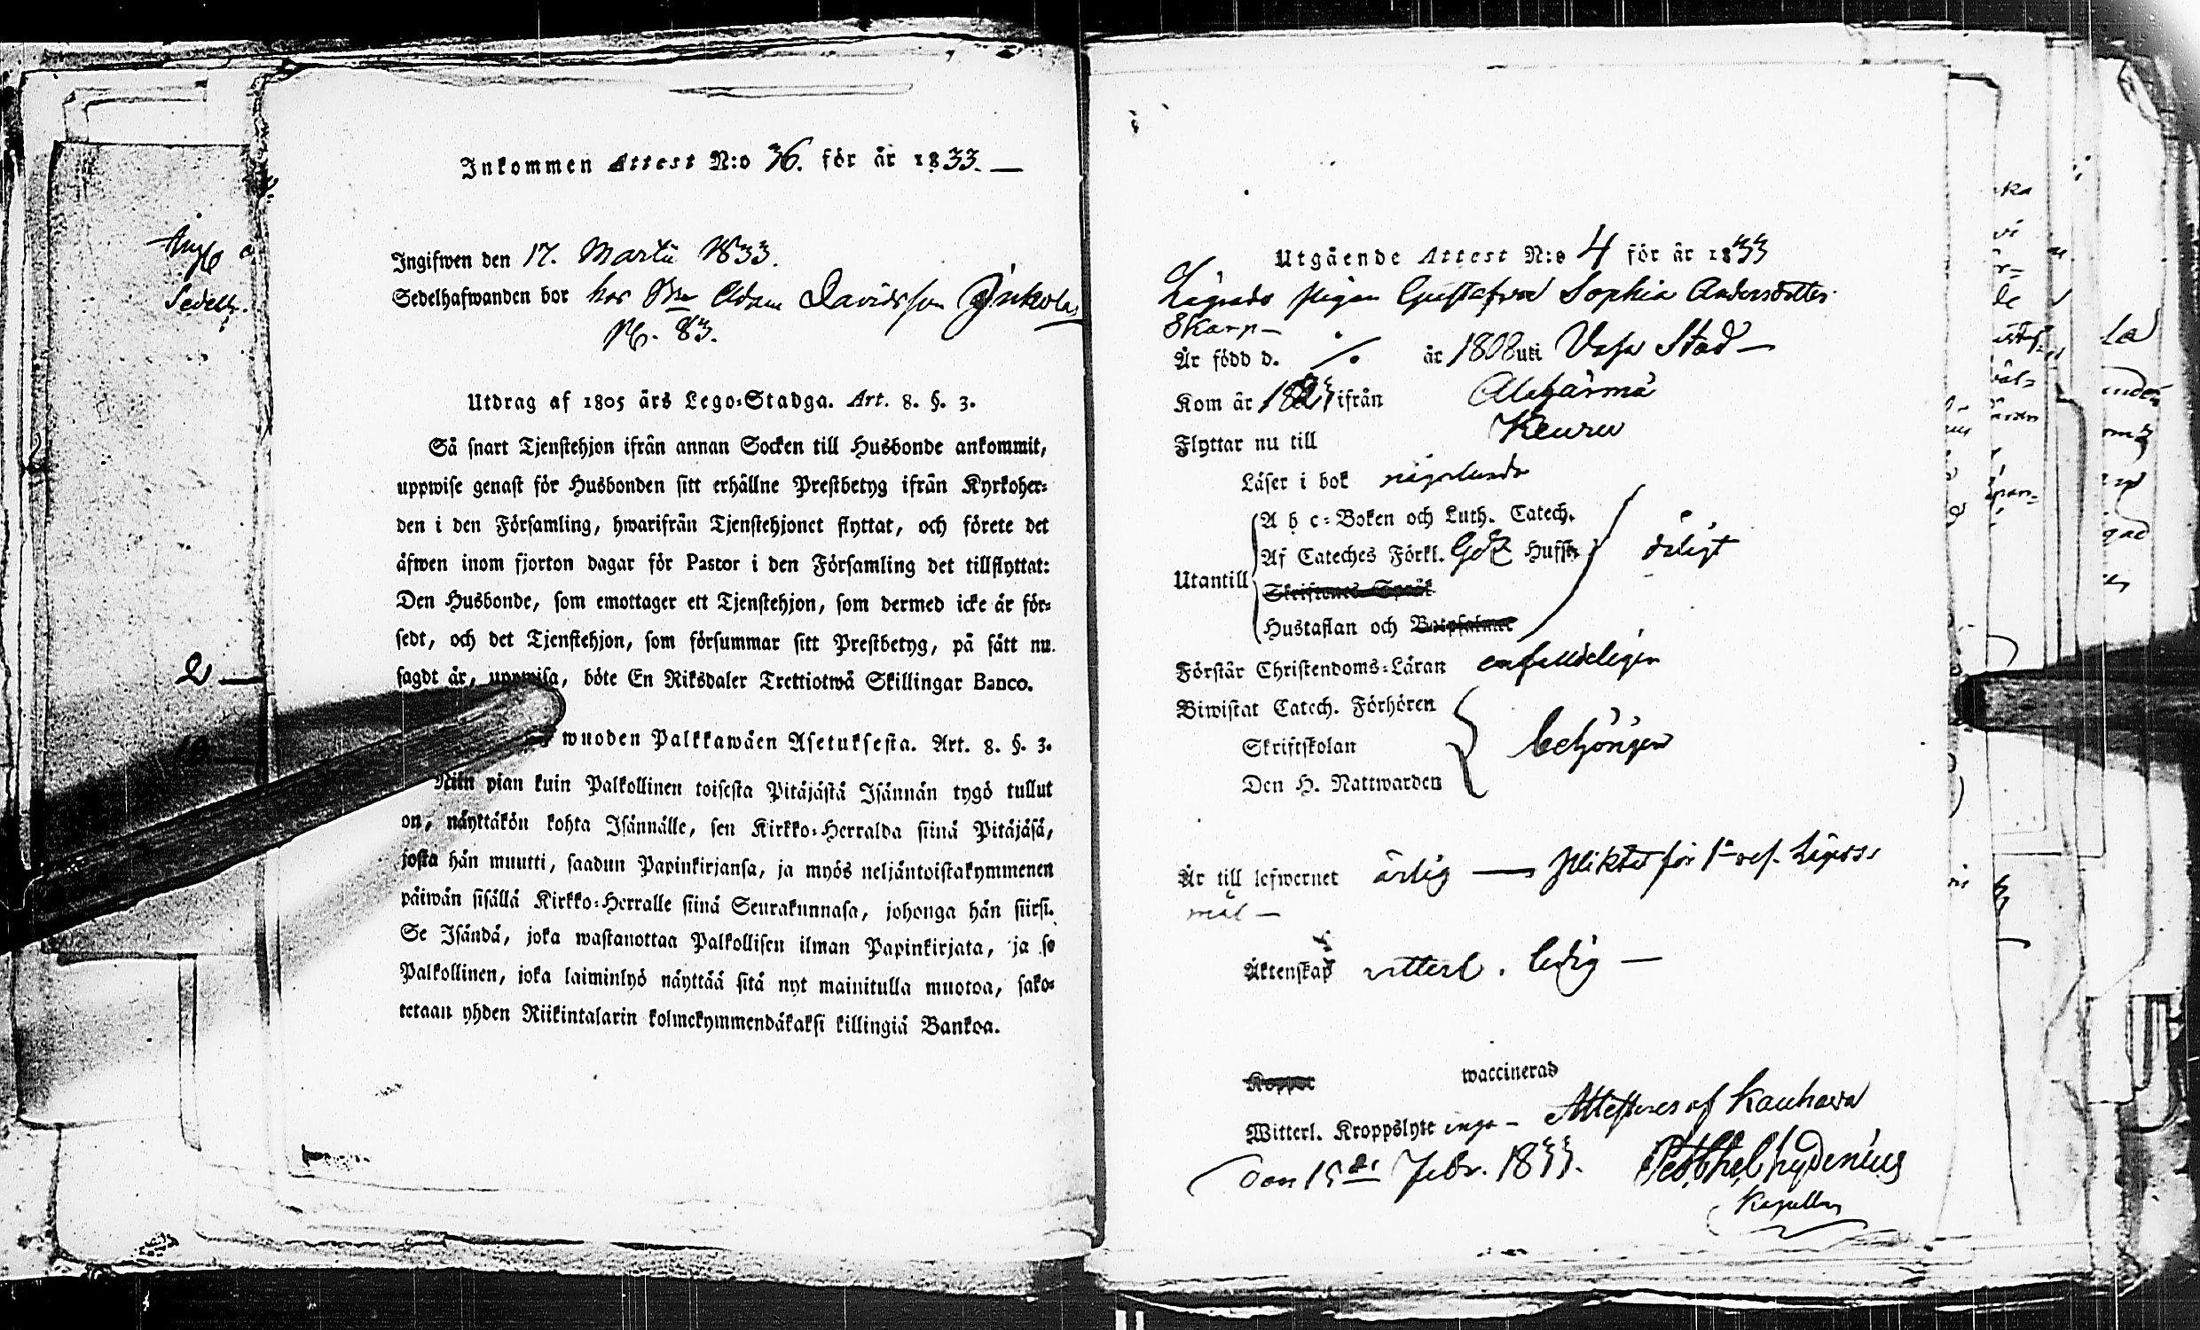 Inkommen Attest N:o 36. för år 1833. —
Ingifwen den 17. Martii 1833.
Sedelhafwanden bor hos Adam Davidsson
N. 83.
Utdrag af 1805 års Lego-Stadga. Art. 8. §. 3.
Så snart Tjenstehjon ifrån annan Socken till Husbonde ankommit,
uppwise genast för Husbonden sitt erhållne Prestbetyg ifrån Kyrkoher-
den i den Församling, hwarifrån Tjenstehjonet flyttat, och förete det
äfwen inom fjorton dagar för Pastor i den Församling det tillflyttat:
Den Husbonde, som emottager ett Tjenstehjon, som dermed icke är för-
sedt, och det Tjenstehjon, som försummar sitt Prestbetyg, på sätt nu
sagdt är, uppwisa, böte En Riksdaler Trettiotwå Skillingar Banco.
wuoden Palkkawäen Asetuksesta. Art. 8. §. 3.
Niin pian kuin Palkollinen toisesta Pitäjästä Isännän tygö tullut
on, näyttäkön kohta Isännälle, sen Kirkko-Herralda siinä Pitäjäsä,
josta hän muutti, saadun Papinkirjansa, ja myös neljäntoistakymmenen
päiwän sisällä Kirkko-Herralle siinä Seurakunnasa, johonga hän siirsi.
Se Isändä, joka wastanottaa Palkollisen ilman Papinkirjata, ja se
Palkollinen, joka laiminlyö näyttää sitä nyt mainitulla muotoa, sako-
tetaan yhden Riikintalarin kolmekymmendäkaksi killingiä Bankoa.
Utgående Attest N:o 4 för år 1833
Lägrade pigan Gustafva Sophia Andersdotter
Skarp —
Är född d. ./. år 1808 uti Vasa Stad —
Kom år ifrån Alahärmä
Flyttar nu till Keuru
Läser i bok någorlunda
A b c-Boken och Luth. Catech.
Af Cateches Förkl. Hufst
Utantill
Skriftenes Språk
Hustaflan och Botpsalmer
Förstår Christendoms-Läran enfaldeligen
Biwistat Catech. Förhören
Skriftskolan behörigen
Den H. Nattwarden
Är till lefwernet ärlig — Pliktat för 1a res. Lägers-
mål —
Äktenskap vitterl. ledig —
Koppor waccinerad
Witterl. Kroppslyte inga — Attesteras af Kauhava
den 15de Febr. 1833. Hydenius
Kapellan
2 —